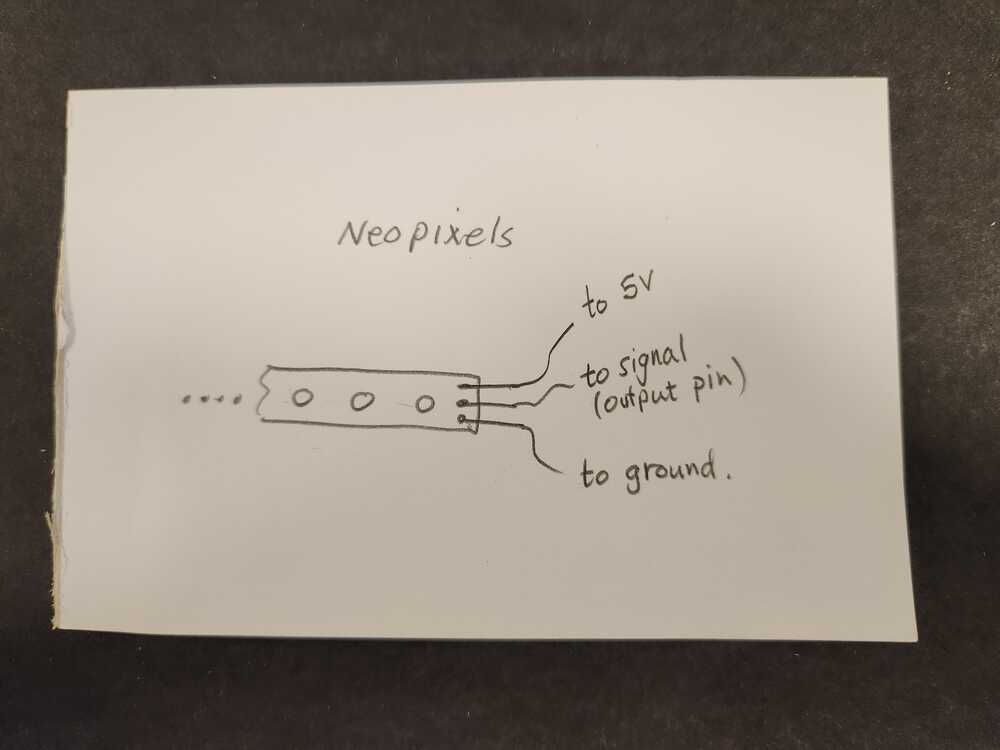 Neopixels
to 5V
to signal
(output pin)
to ground.